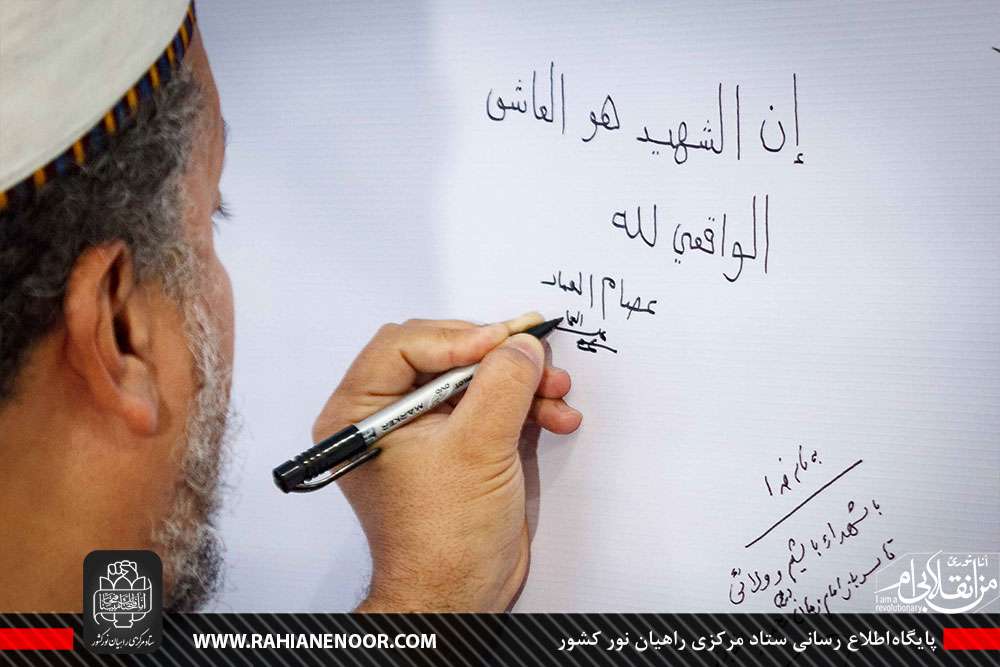 إن الشهيد هو العاشق
الواقعي لله
عصام العماد
به نام خدا
با شهداء باشیم و ولائی
تا سرباز امام زمان
انا ثوری
من انقلابی‌ام
I am a
revolutionary
ستاد مرکزی راهیان نور کشور
WWW.RAHIANENOOR.COM
پایگاه اطلاع رسانی ستاد مرکزی راهیان نور کشور